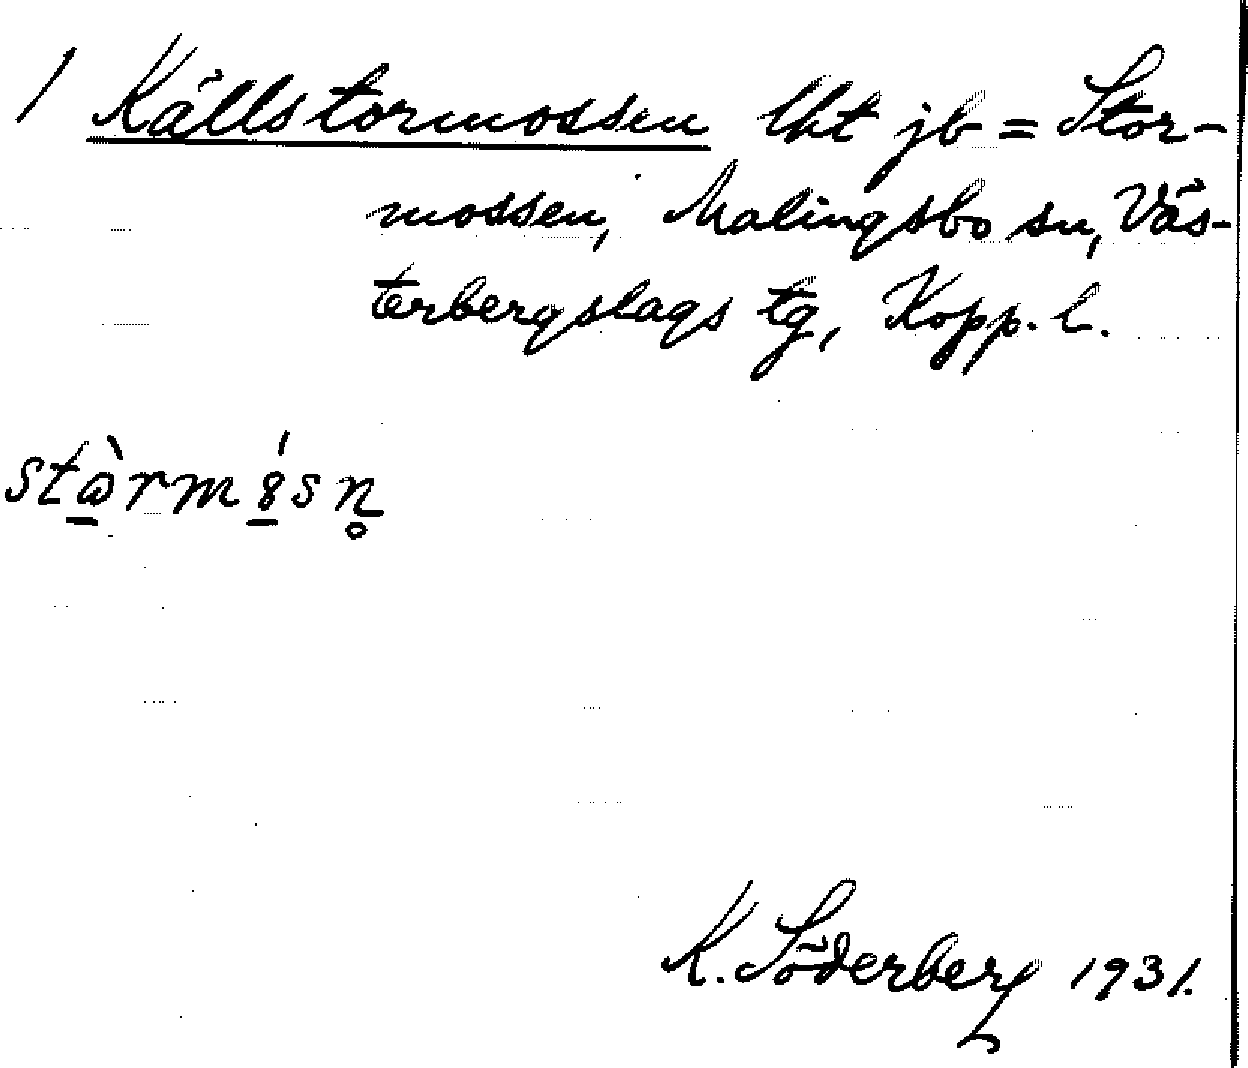 1 Källstormossen lht jb = Stor-
mossen, Malingsbo sn, Väs-
terbergslags tg, Kopp. l.
K. Söderberg 1931.